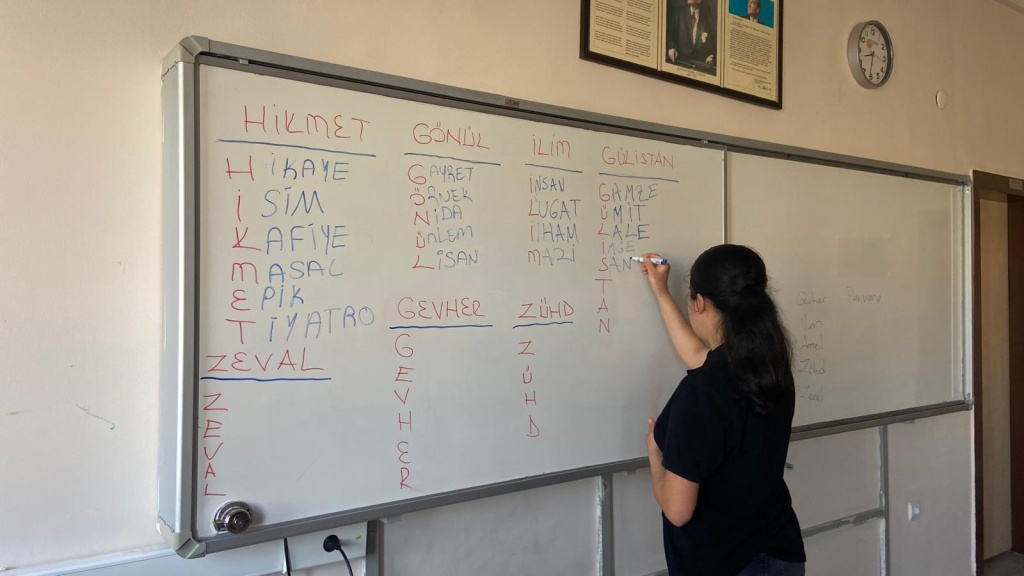 HİKMET
HİKAYE
İSİM
KAFİYE
MASAL
EPİK
TİYATRO
GÖNÜL
GAYRET
ÖRNEK
NİDA
ÜNLEM
LİSAN
İLİM
İNSAN
LUGAT
İLHAM
MAZİ
GÜLİSTAN
GAMZE
ÜMİT
LALE
İMGE
SAN
T
A
N
ZEVAL
Z
E
V
A
L
GEVHER
G
E
V
H
E
R
ZÜHD
Z
Ü
H
D
Gevher Pervane
İlim
Amel
Zühd